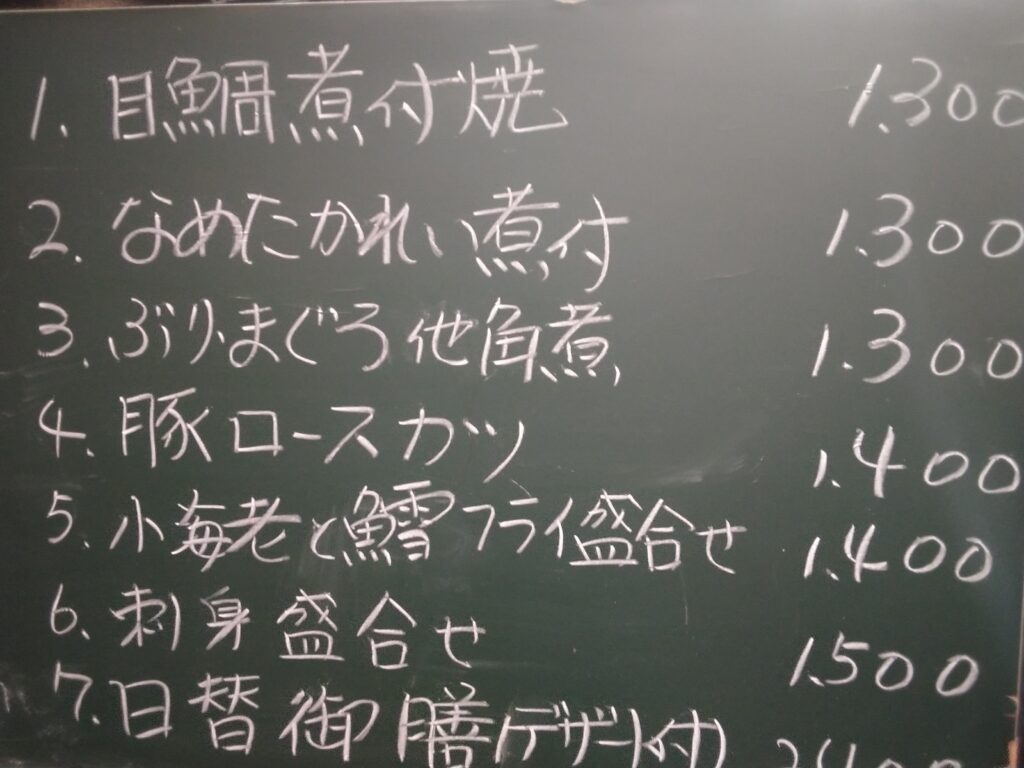 1. 目鯛煮付焼 1.300
2. なめたかれい煮付 1.300
3. ぶり、まぐろ他角煮 1.300
4. 豚ロースカツ 1.400
5. 小海老と鱈フライ盛合せ 1.400
6. 刺身盛合せ 1.500
7. 日替御膳デザート付